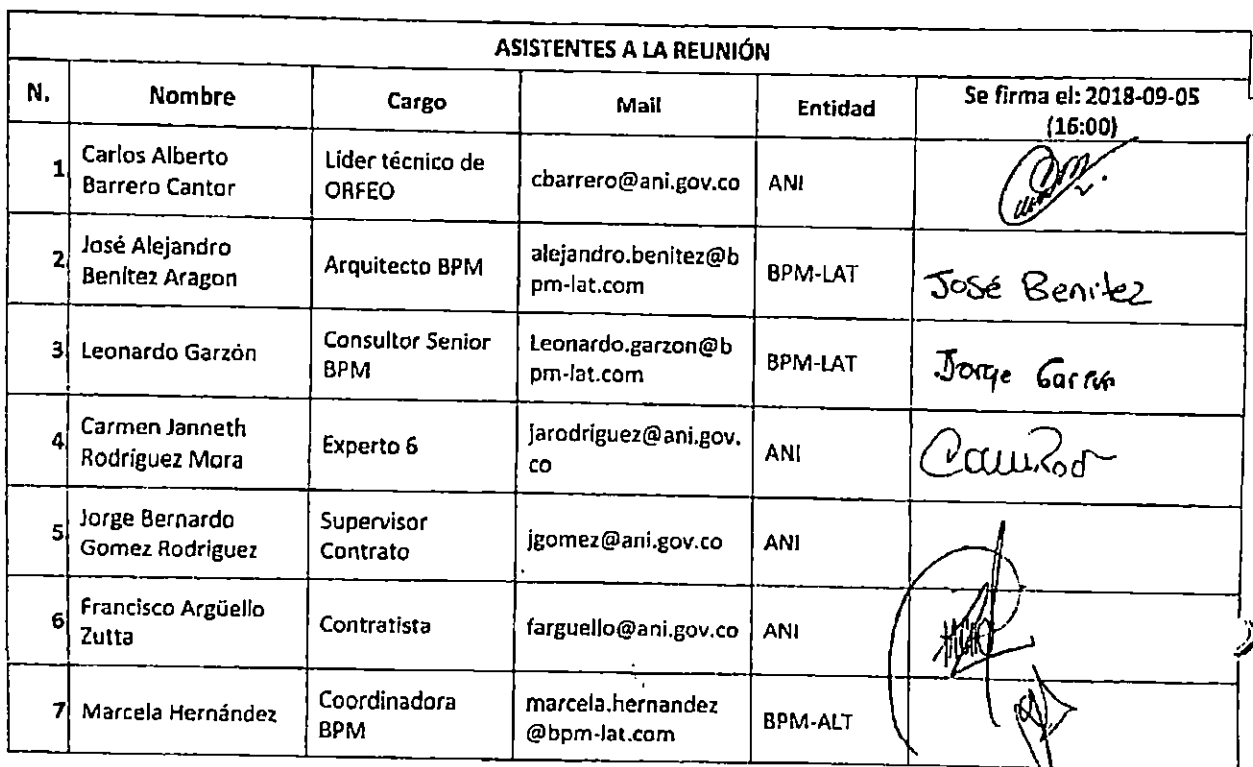 ASISTENTES A LA REUNIÓN
N. Nombre Cargo Mail Entidad Se firma el: 2018-09-05
(16:00)
1 Carlos Alberto
Barrero Cantor
Lider técnico de
ORFEO
cbarrero@ani.gov.co
ANI
2 José Alejandro
Benítez Aragon
Arquitecto BPM
alejandro.benitez@b
pm-lat.com
BPM-LAT
José Benitez
3 Leonardo Garzón
Consultor Senior
BPM
Leonardo.garzon@b
pm-lat.com
BPM-LAT
Jorge
4 Carmen Janneth
Rodríguez Mora
Experto 6
jarodriguez@ani.gov.
co
ANI
5 Jorge Bernardo
Gomez Rodriguez
Supervisor
Contrato
jgomez@ani.gov.co
ANI
6 Francisco Argüello
Zutta
Contratista
farguello@ani.gov.co
ANI
7 Marcela Hernández
Coordinadora
BPM
marcela.hernandez
@bpm-lat.com
BPM-ALT